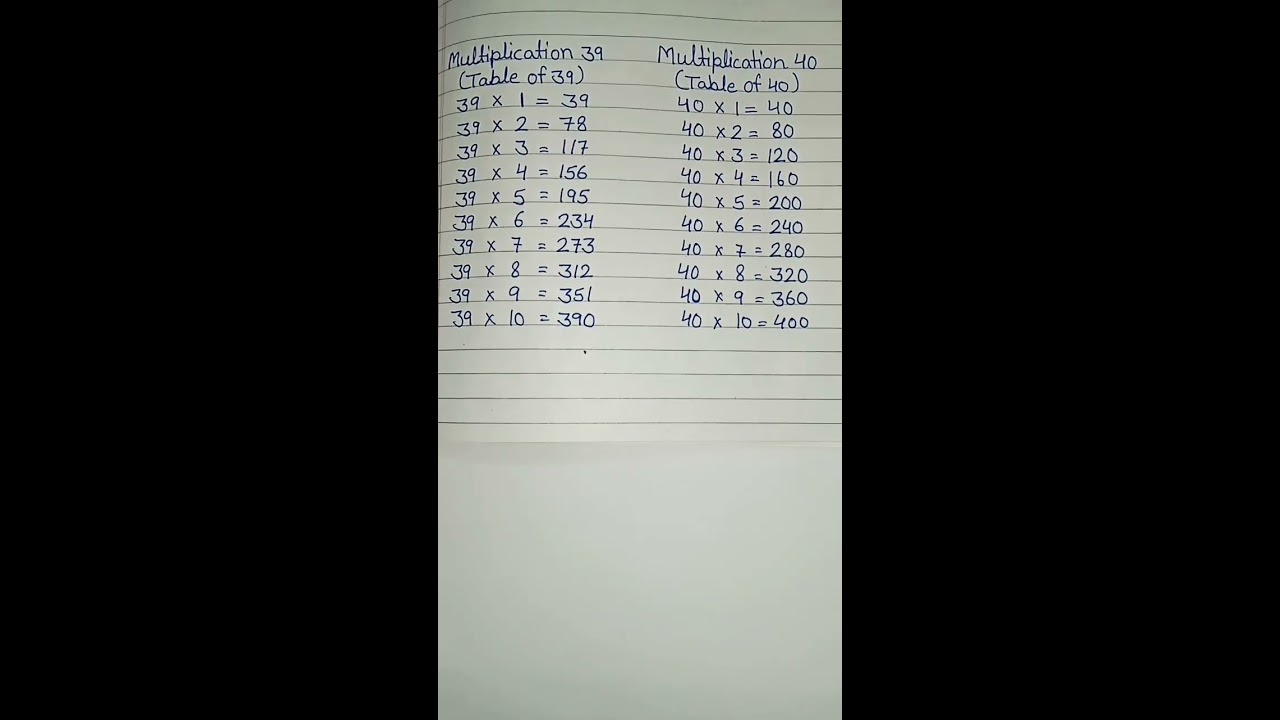 Multiplication 39
(Table of 39)
39 × 1 = 39
39 × 2 = 78
39 × 3 = 117
39 × 4 = 156
39 × 5 = 195
39 × 6 = 234
39 × 7 = 273
39 × 8 = 312
39 × 9 = 351
39 × 10 = 390
Multiplication 40
(Table of 40)
40 × 1 = 40
40 × 2 = 80
40 × 3 = 120
40 × 4 = 160
40 × 5 = 200
40 × 6 = 240
40 × 7 = 280
40 × 8 = 320
40 × 9 = 360
40 × 10 = 400